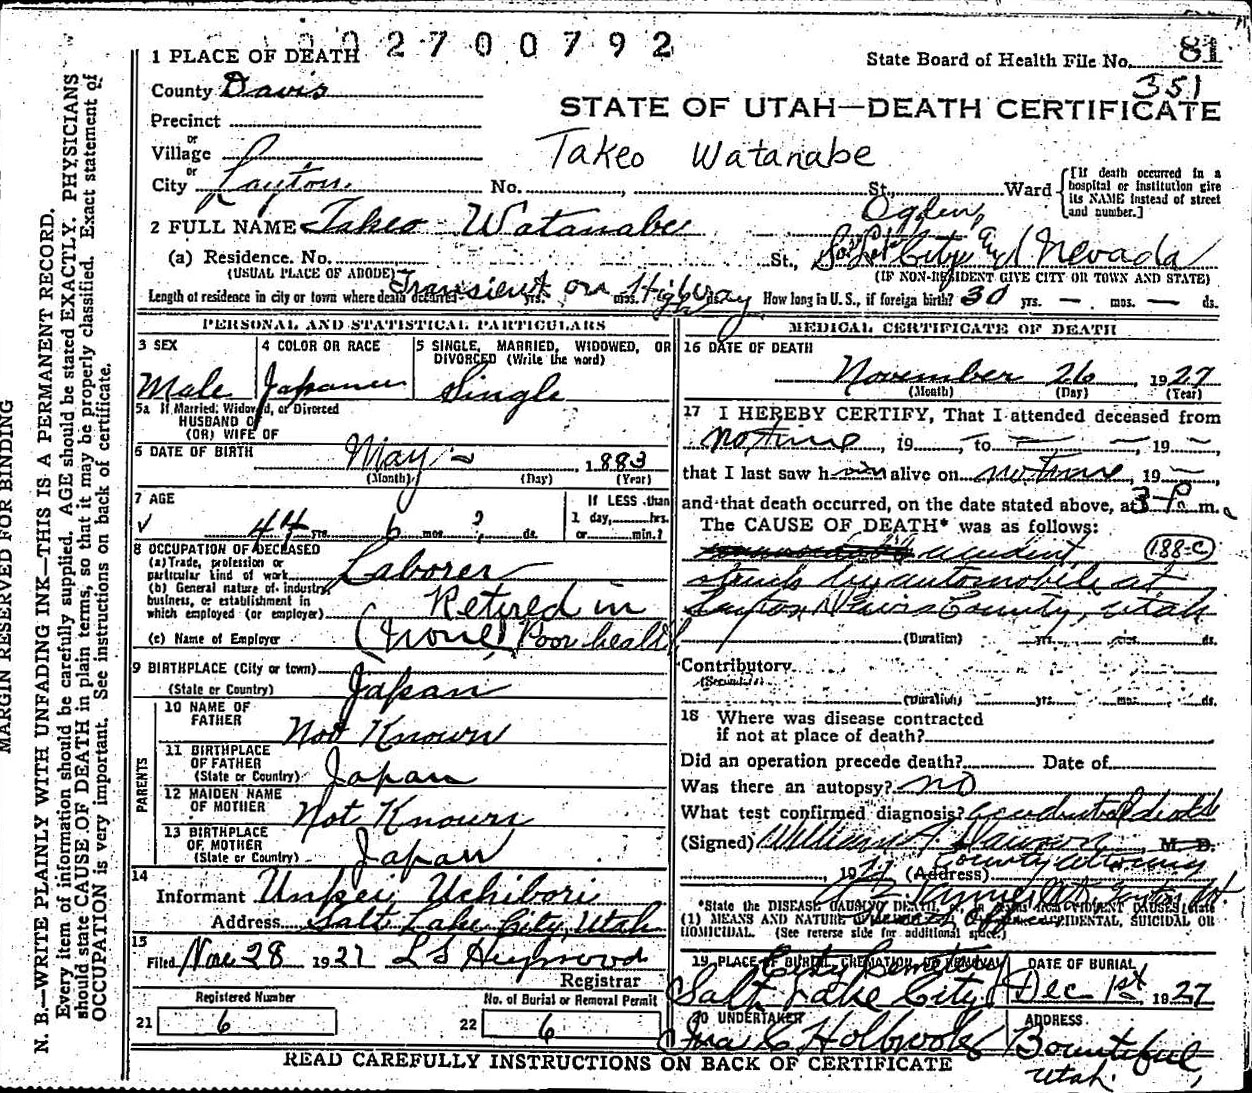 002700792
1 PLACE OF DEATH
State Board of Health File No. 81
351
County Davis
STATE OF UTAH—DEATH CERTIFICATE
Precinct
or
Village
Takeo Watanabe
or
City Layton. No. , St., Ward
[If death occurred in a
hospital or institution give
its NAME instead of street
and number.]
2 FULL NAME Takeo Watanabe
Ogden,
(a) Residence. No. St., City and Nevada
(USUAL PLACE OF ABODE) (IF NON-RESIDENT GIVE CITY OR TOWN AND STATE)
Transient on Highway
Length of residence in city or town where death occurred yrs. mos. ds. How long in U. S., if foreign birth? 30 yrs. — mos. — ds.
PERSONAL AND STATISTICAL PARTICULARS
3 SEX
Male
4 COLOR OR RACE
Japanese
5 SINGLE, MARRIED, WIDOWED, OR
DIVORCED (Write the word)
Single
5a If Married, Widowed, or Divorced
HUSBAND OF
(OR) WIFE OF
6 DATE OF BIRTH May — , 1883
(Month) (Day) (Year)
7 AGE
44 yrs. 6 mos. ? ds.
If LESS than
1 day, hrs.
or min.?
8 OCCUPATION OF DECEASED
(a) Trade, profession or
particular kind of work Laborer
(b) General nature of industry,
business, or establishment in
which employed (or employer) Retired in
(c) Name of Employer (None) Poor health
9 BIRTHPLACE (City or town)
(State or Country) Japan
PARENTS
10 NAME OF
FATHER Not Known
11 BIRTHPLACE
OF FATHER
(State or Country) Japan
12 MAIDEN NAME
OF MOTHER Not Known
13 BIRTHPLACE
OF MOTHER
(State or Country) Japan
14
Informant Unkei Uchibori
Address Salt Lake City, Utah
15
Filed Nov 28 1927 L S Heywood
Registrar
Registered Number
21 6
No. of Burial or Removal Permit
22 6
MEDICAL CERTIFICATE OF DEATH
16 DATE OF DEATH
November 26, 1927
(Month) (Day) (Year)
17 I HEREBY CERTIFY, That I attended deceased from
no time, 19 — to — — 19 —
that I last saw him alive on no time, 19 —,
and that death occurred, on the date stated above, at 3 P. m.
The CAUSE OF DEATH* was as follows:
accident 188-C
struck by automobile at
Layton, Davis County, Utah
(Duration) yrs. mos. ds.
Contributory
(Secondary)
(Duration) yrs. mos. ds.
18 Where was disease contracted
if not at place of death?
Did an operation precede death? Date of
Was there an autopsy? no
What test confirmed diagnosis? accidental death
(Signed) William , M. D.
County Attorney
, 1927 (Address)
*State the DISEASE CAUSING DEATH, or, in deaths from VIOLENT CAUSES, state
(1) MEANS AND NATURE OF INJURY, ACCIDENTAL, SUICIDAL OR
HOMICIDAL. (See reverse side for additional space.)
19 PLACE OF BURIAL, CREMATION OR REMOVAL
City Cemetery
Salt Lake City
DATE OF BURIAL
Dec 1st, 1927
20 UNDERTAKER
Ira C Holbrook
ADDRESS
Bountiful
Utah.
READ CAREFULLY INSTRUCTIONS ON BACK OF CERTIFICATE
MARGIN RESERVED FOR BINDING
N. B.—WRITE PLAINLY WITH UNFADING INK—THIS IS A PERMANENT RECORD.
Every item of information should be carefully supplied. AGE should be stated EXACTLY. PHYSICIANS
should state CAUSE OF DEATH in plain terms, so that it may be properly classified. Exact statement of
OCCUPATION is very important. See instructions on back of certificate.